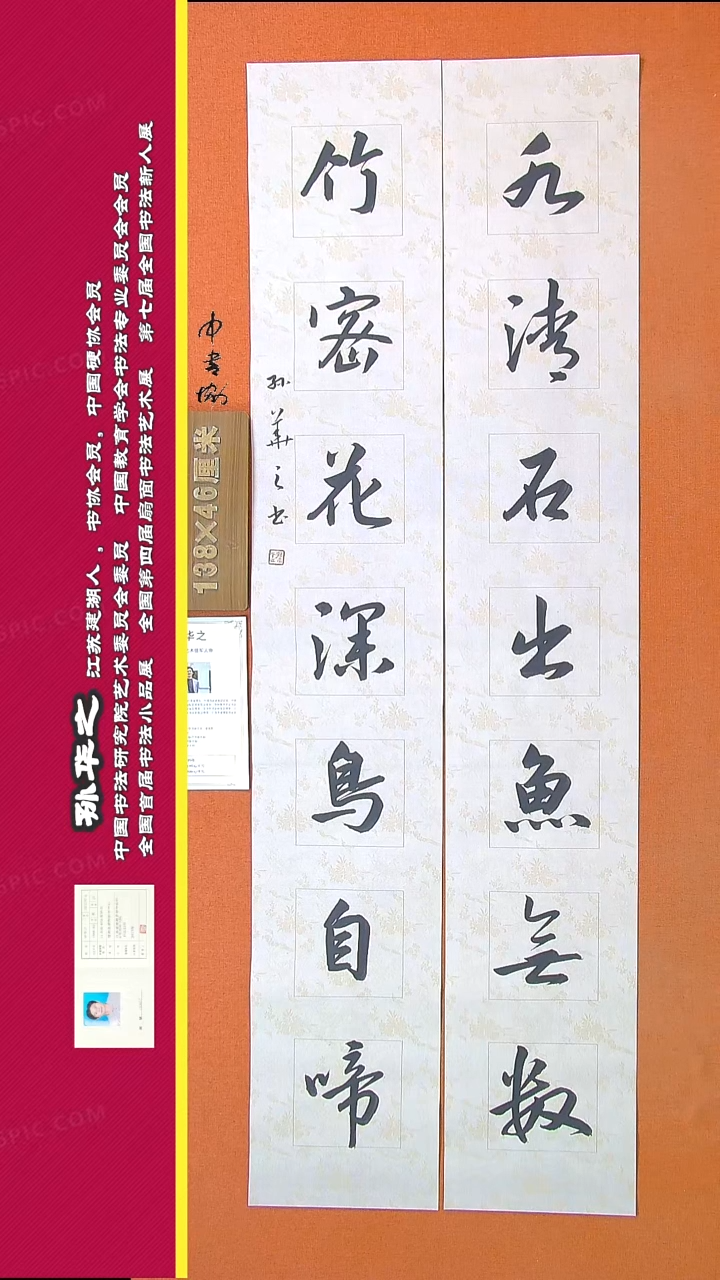 水清石出魚無數
竹密花深鳥自啼
孙華之书
中書協
138×46厘米
孙华之 江苏建湖人，书协会员，中国硬协会员
中国书法研究院艺术委员会委员 中国教育学会书法专业委员会会员
全国首届书法小品展 全国第四届扇面书法艺术展 第七届全国书法新人展